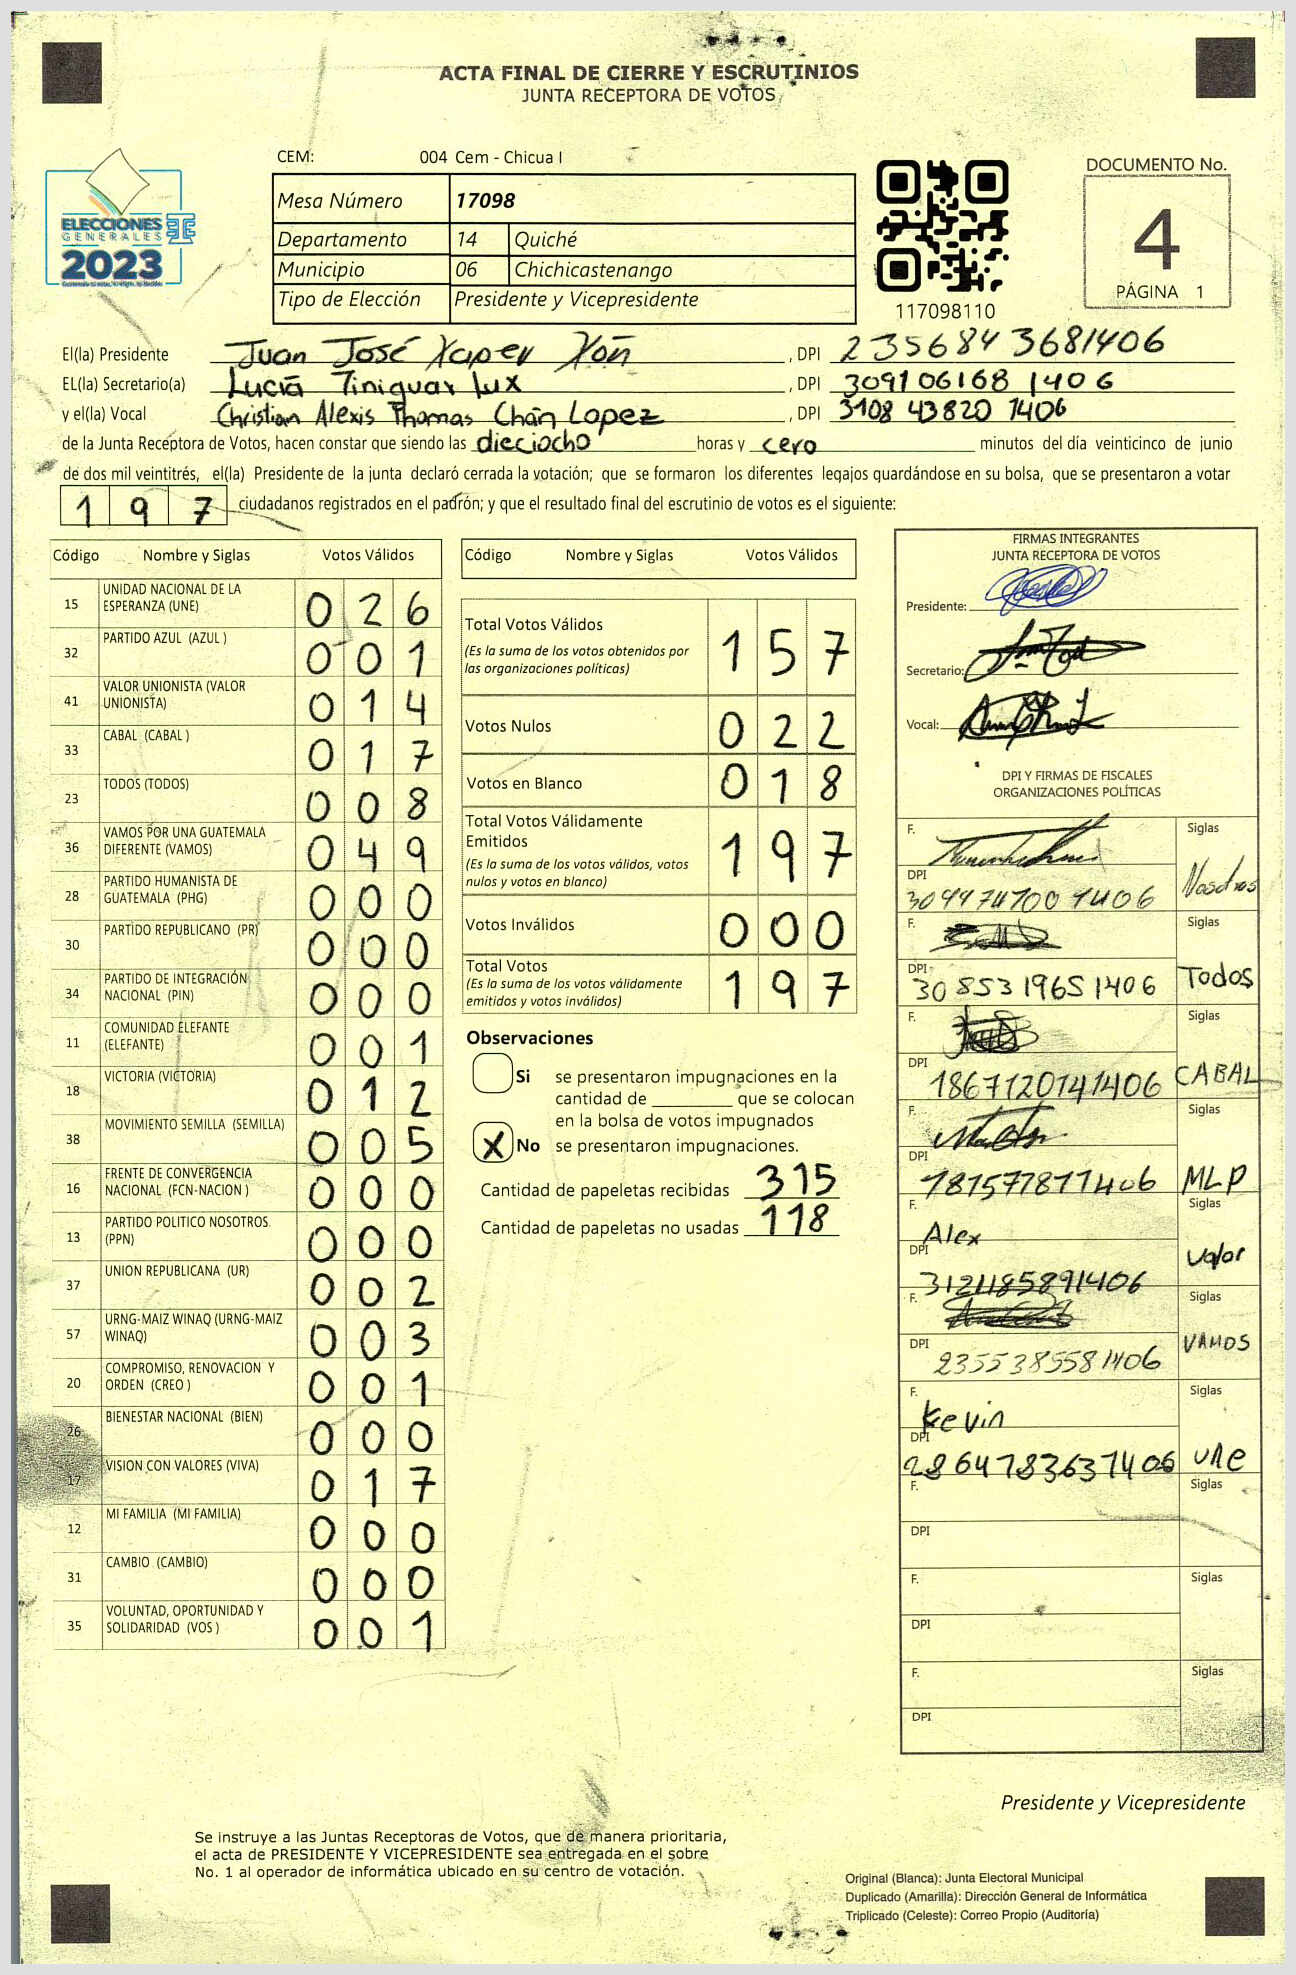 ACTA FINAL DE CIERRE Y ESCRUTINIOS
JUNTA RECEPTORA DE VOTOS
CEM: 004 Cem - Chicua I
ELECCIONES
GENERALES
2023
Mesa Número 17098
Departamento 14 Quiché
Municipio 06 Chichicastenango
Tipo de Elección Presidente y Vicepresidente
117098110
DOCUMENTO No.
4
PÁGINA 1
El(la) Presidente Juan José Xaper Xón , DPI 2356843681406
EL(la) Secretario(a) Lucía Tiniguar Lux , DPI 3091061681406
y el(la) Vocal Christian Alexis Thomas Chán Lopez , DPI 3108438201406
de la Junta Receptora de Votos, hacen constar que siendo las dieciocho horas y cero minutos del día veinticinco de junio
de dos mil veintitrés, el(la) Presidente de la junta declaró cerrada la votación; que se formaron los diferentes legajos guardándose en su bolsa, que se presentaron a votar
197 ciudadanos registrados en el padrón; y que el resultado final del escrutinio de votos es el siguiente:
Código Nombre y Siglas Votos Válidos
15 UNIDAD NACIONAL DE LA ESPERANZA (UNE) 026
32 PARTIDO AZUL (AZUL ) 001
41 VALOR UNIONISTA (VALOR UNIONISTA) 014
33 CABAL (CABAL ) 017
23 TODOS (TODOS) 008
36 VAMOS POR UNA GUATEMALA DIFERENTE (VAMOS) 049
28 PARTIDO HUMANISTA DE GUATEMALA (PHG) 000
30 PARTIDO REPUBLICANO (PR) 000
34 PARTIDO DE INTEGRACIÓN NACIONAL (PIN) 000
11 COMUNIDAD ELEFANTE (ELEFANTE) 001
18 VICTORIA (VICTORIA) 012
38 MOVIMIENTO SEMILLA (SEMILLA) 005
16 FRENTE DE CONVERGENCIA NACIONAL (FCN-NACION ) 000
13 PARTIDO POLITICO NOSOTROS (PPN) 000
37 UNION REPUBLICANA (UR) 002
57 URNG-MAIZ WINAQ (URNG-MAIZ WINAQ) 003
20 COMPROMISO, RENOVACION Y ORDEN (CREO ) 001
26 BIENESTAR NACIONAL (BIEN) 000
17 VISION CON VALORES (VIVA) 017
12 MI FAMILIA (MI FAMILIA) 000
31 CAMBIO (CAMBIO) 000
35 VOLUNTAD, OPORTUNIDAD Y SOLIDARIDAD (VOS ) 001
Código Nombre y Siglas Votos Válidos
Total Votos Válidos 157
(Es la suma de los votos obtenidos por
las organizaciones políticas)
Votos Nulos 022
Votos en Blanco 018
Total Votos Válidamente
Emitidos 197
(Es la suma de los votos válidos, votos
nulos y votos en blanco)
Votos Inválidos 000
Total Votos 197
(Es la suma de los votos válidamente
emitidos y votos inválidos)
Observaciones
Si se presentaron impugnaciones en la
cantidad de ________ que se colocan
en la bolsa de votos impugnados
X No se presentaron impugnaciones.
Cantidad de papeletas recibidas 315
Cantidad de papeletas no usadas 118
FIRMAS INTEGRANTES
JUNTA RECEPTORA DE VOTOS
Presidente:
Secretario:
Vocal:
DPI Y FIRMAS DE FISCALES
ORGANIZACIONES POLÍTICAS
F. Siglas
DPI Nosotros
3099747001406
F. Siglas
DPI
3085319651406 Todos
F. Siglas
DPI
1867120141406 CABAL
F. Siglas
DPI
1815771811406 MLP
F. Alex Siglas
DPI Valor
3121185891406
F. Siglas
DPI VAMOS
2355385581406
F. Kevin Siglas
DPI
2864783631406 UNE
F. Siglas
DPI
F. Siglas
DPI
F. Siglas
DPI
Presidente y Vicepresidente
Se instruye a las Juntas Receptoras de Votos, que de manera prioritaria,
el acta de PRESIDENTE Y VICEPRESIDENTE sea entregada en el sobre
No. 1 al operador de informática ubicado en su centro de votación.
Original (Blanca): Junta Electoral Municipal
Duplicado (Amarilla): Dirección General de Informática
Triplicado (Celeste): Correo Propio (Auditoría)